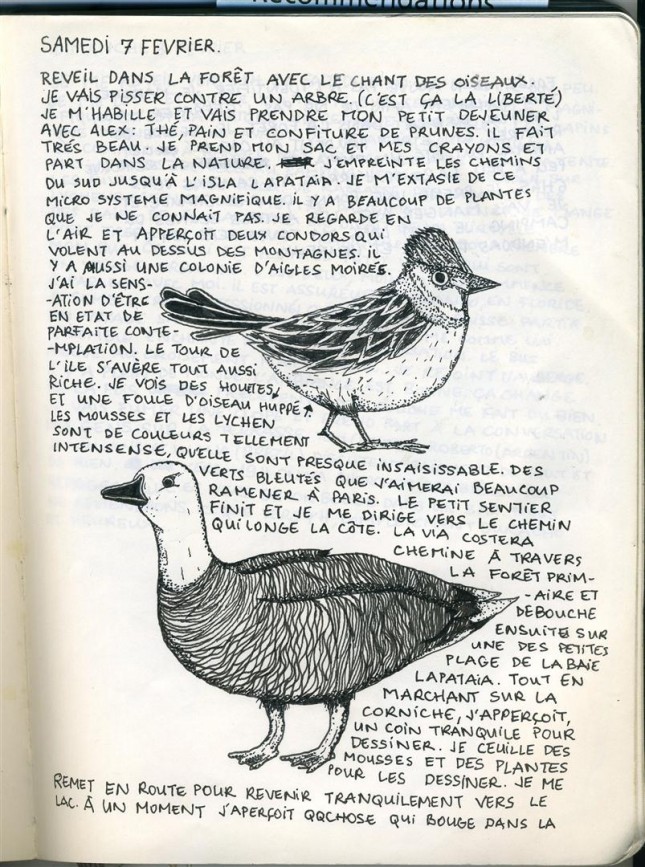 Recommendations
SAMEDI 7 FEVRIER.
REVEIL DANS LA FORÊT AVEC LE CHANT DES OISEAUX.
JE VAIS PISSER CONTRE UN ARBRE. (C'EST ÇA LA LIBERTÉ)
JE M'HABILLE ET VAIS PRENDRE MON PETIT DEJEUNER
AVEC ALEX: THÉ, PAIN ET CONFITURE DE PRUNES. IL FAIT
TRÉS BEAU. JE PREND MON SAC ET MES CRAYONS ET
PART DANS LA NATURE. J'EMPREINTE LES CHEMINS
DU SUD JUSQU'À L'ISLA LAPATAIA. JE M'EXTASIE DE CE
MICRO SYSTEME MAGNIFIQUE. IL Y A BEAUCOUP DE PLANTES
QUE JE NE CONNAIT PAS. JE REGARDE EN
L'AIR ET APPERÇOIT DEUX CONDORS QUI
VOLENT AU DESSUS DES MONTAGNES. IL
Y A AUSSI UNE COLONIE D'AIGLES MOIRÉS.
J'AI LA SENS-
-ATION D'ÊTRE
EN ETAT DE
PARFAITE CONTE-
-MPLATION. LE TOUR DE
L'ILE S'AVÈRE TOUT AUSSI
RICHE. JE VOIS DES HOUTTES,
ET UNE FOULE D'OISEAU HUPPÉ
LES MOUSSES ET LES LYCHEN
SONT DE COULEURS TELLEMENT
INTENSENSE, QU'ELLE SONT PRESQUE INSAISISSABLE. DES
VERTS BLEUTÉS QUE J'AIMERAI BEAUCOUP
RAMENER À PARIS. LE PETIT SENTIER
FINIT ET JE ME DIRIGE VERS LE CHEMIN
QUI LONGE LA CÔTE. LA VIA COSTERA
CHEMINE À TRAVERS
LA FORÊT PRIM-
-AIRE ET
DEBOUCHE
ENSUITE SUR
UNE DES PETITES
PLAGE DE LA BAIE
LAPATAIA. TOUT EN
MARCHANT SUR LA
CORNICHE, J'APPERÇOIT,
UN COIN TRANQUILE POUR
DESSINER. JE CEUILLE DES
MOUSSES ET DES PLANTES
POUR LES DESSINER. JE ME
REMET EN ROUTE POUR REVENIR TRANQUILEMENT VERS LE
LAC. À UN MOMENT J'APERÇOIT QQCHOSE QUI BOUGE DANS LA